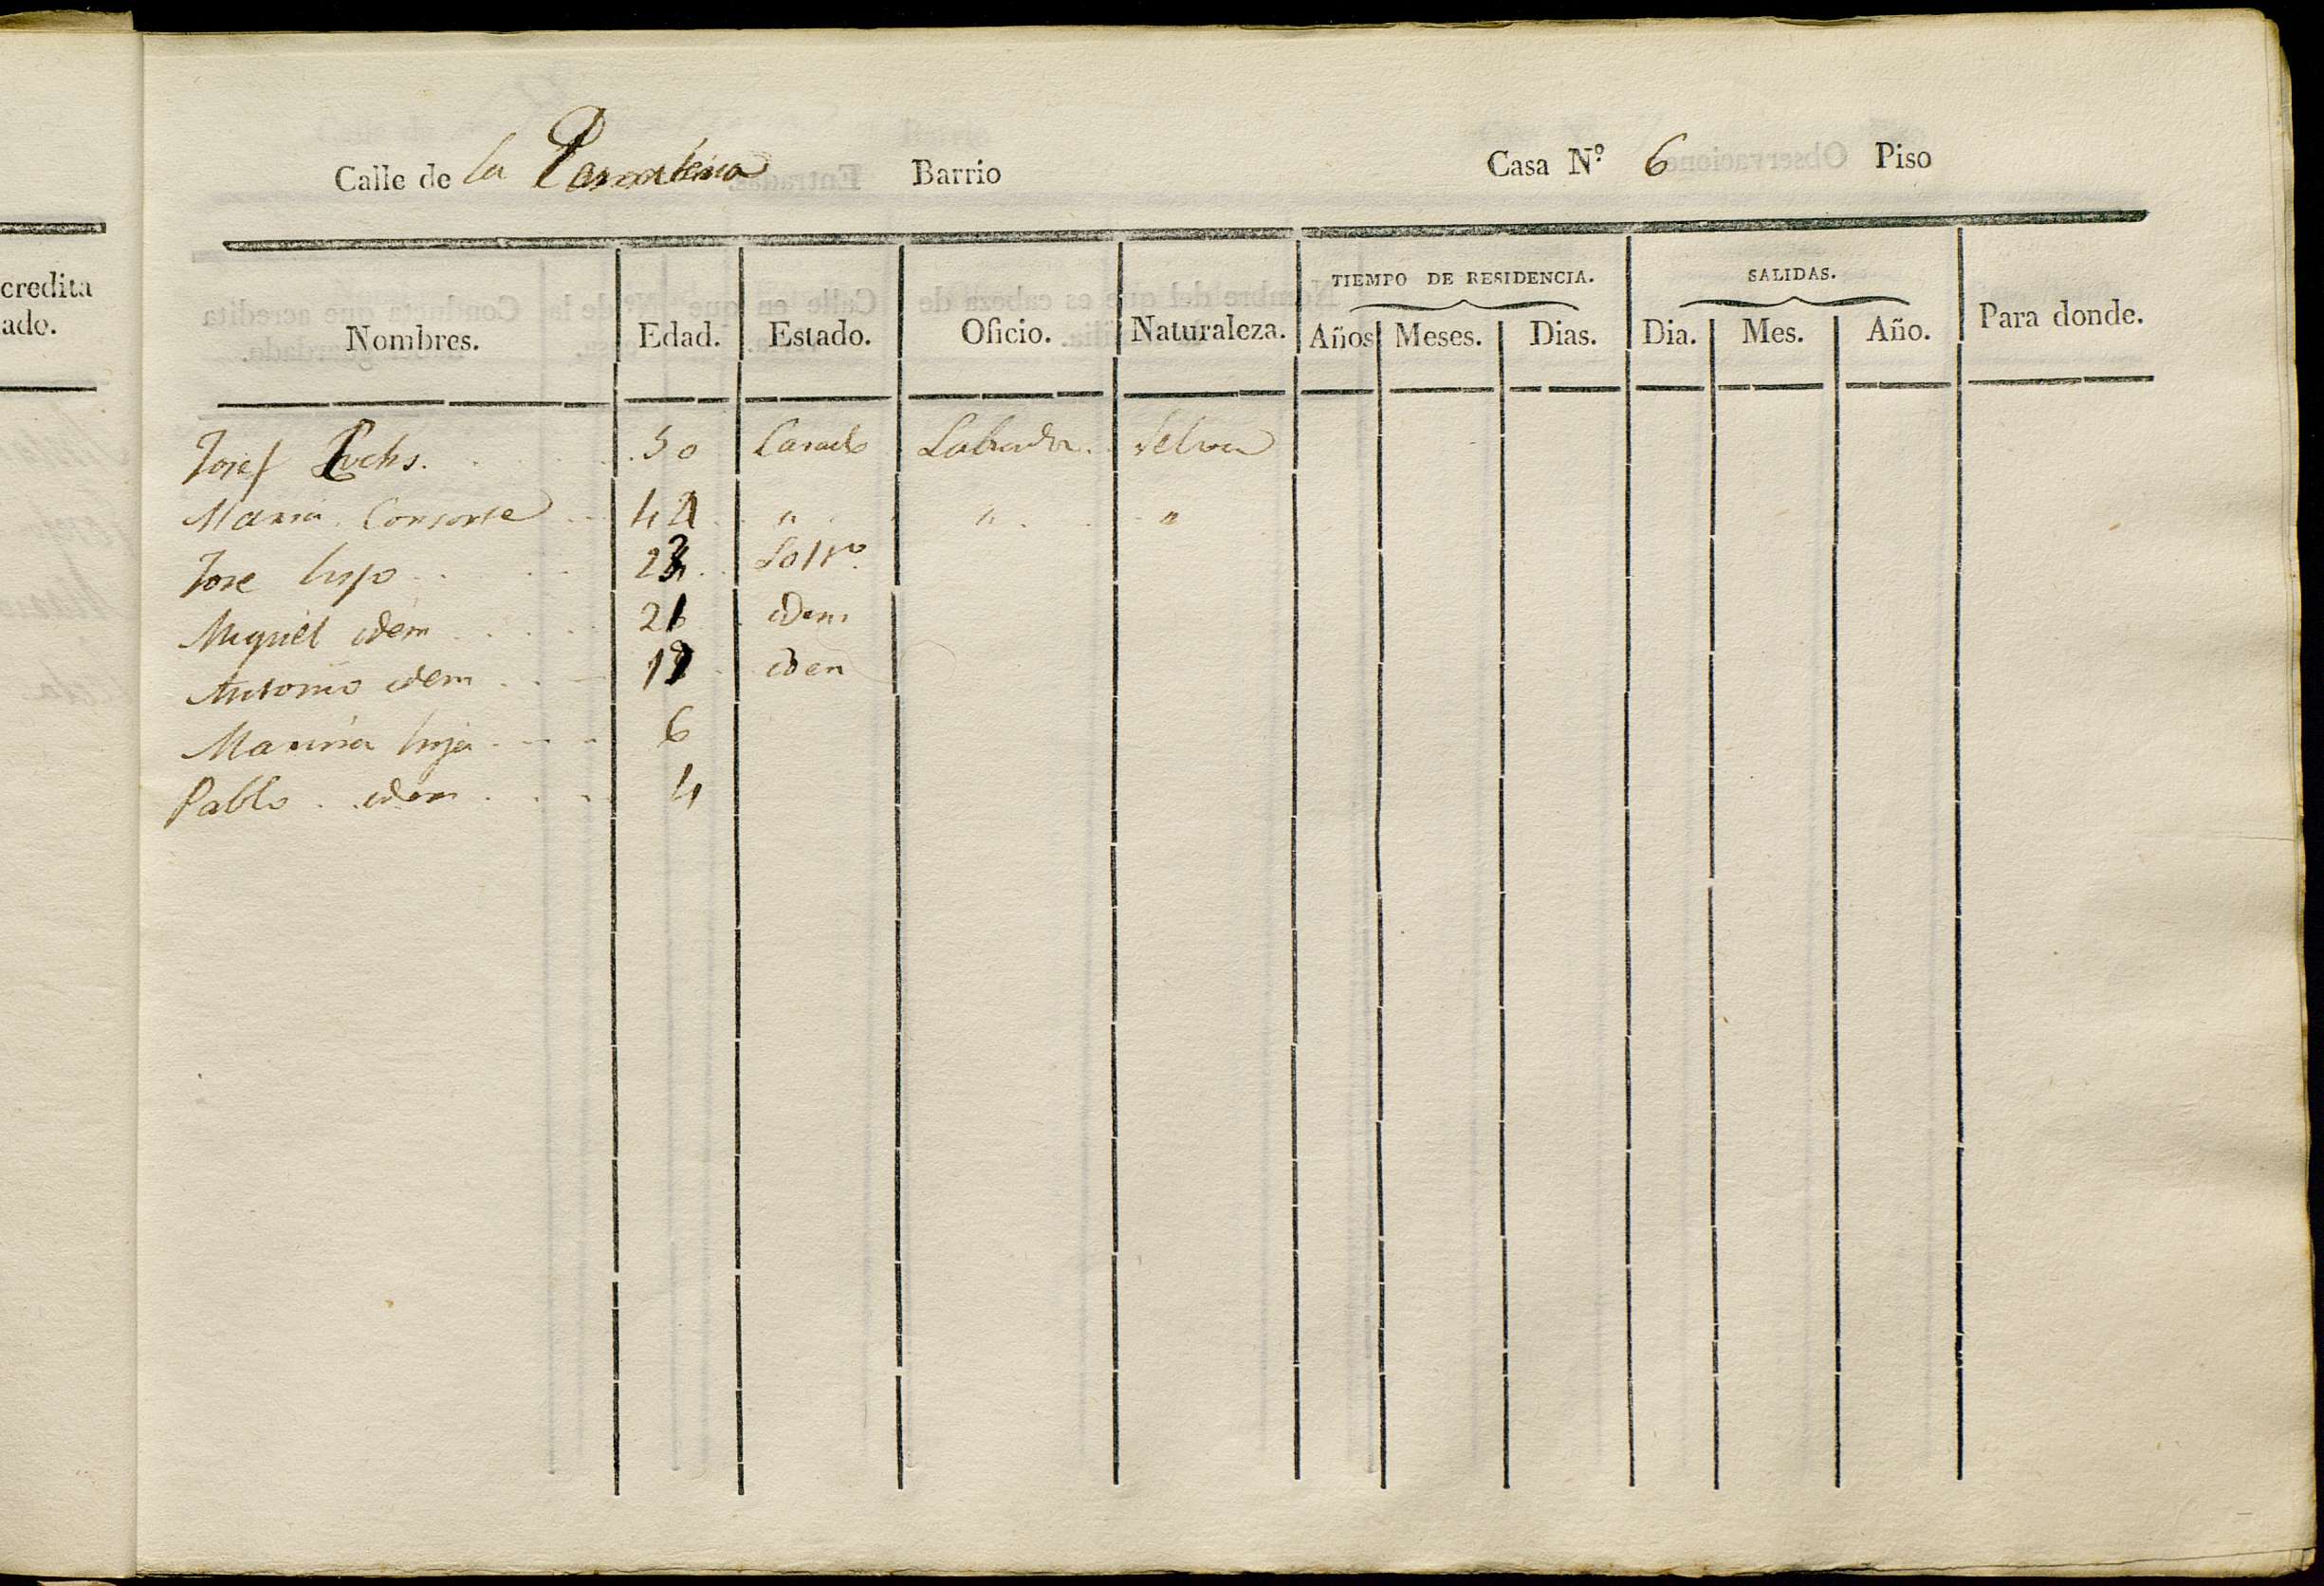 credita
ado.
Calle de la Barrio Casa N.º 6 Piso
TIEMPO DE RESIDENCIA. SALIDAS.
Nombres. Edad. Estado. Oficio. Naturaleza. Años Meses. Dias. Dia. Mes. Año. Para donde.
Josef 50 Casado Labrador. Selva
Maria Consorte 42 " " "
Jose hijo 23 Soltº
Miguel idem 21 idem
Antonio idem idem
Maria hija 6
Pablo idem 4